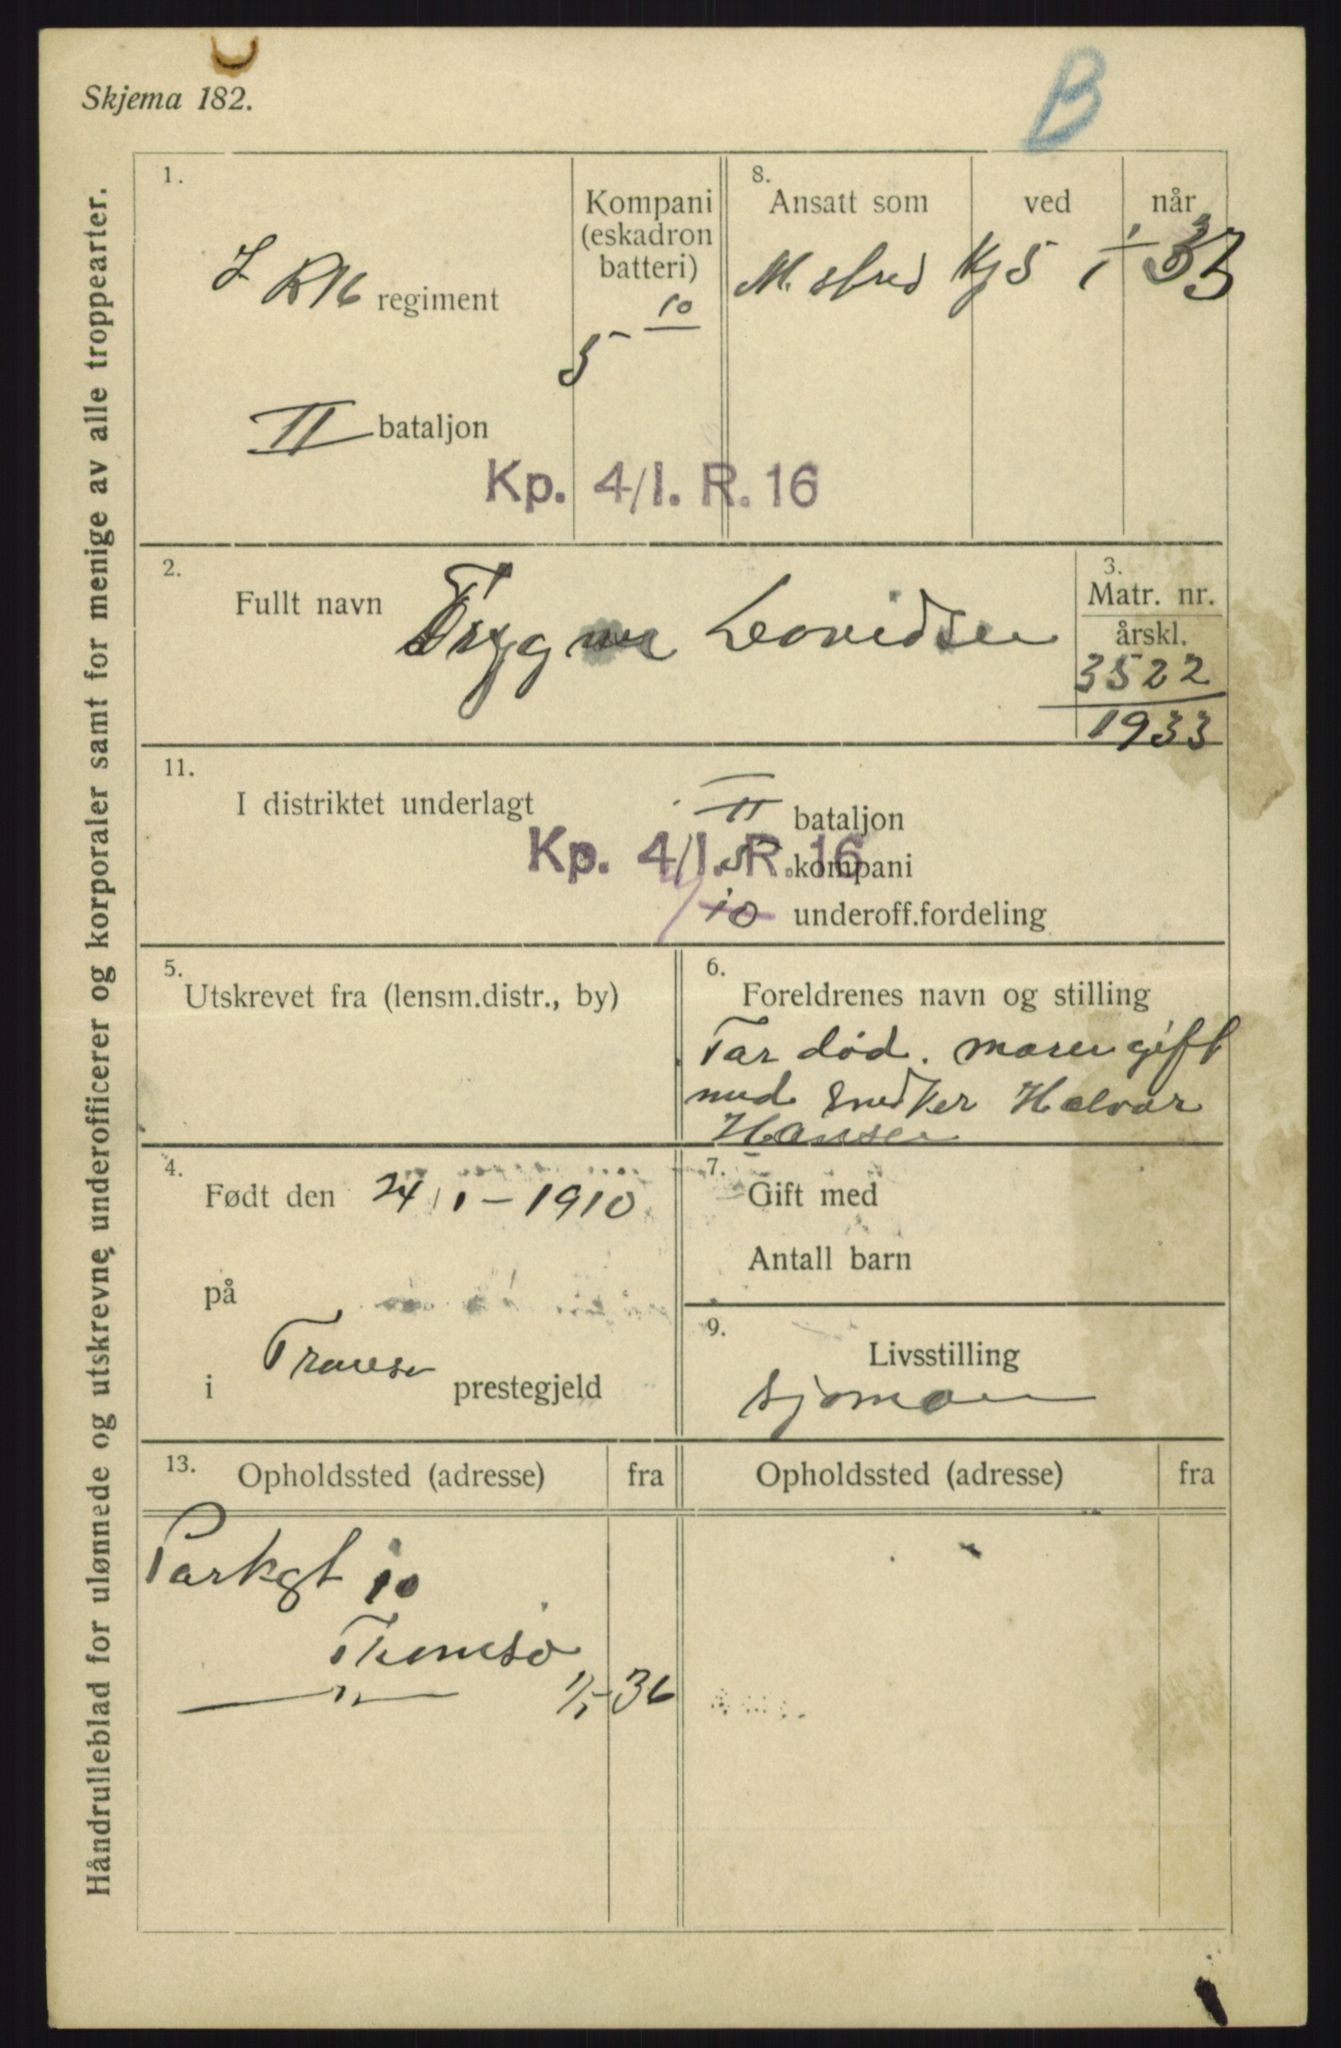 Skjema 182.
B
Håndrulleblad for ulønnede og utskrevne underofficerer og korporaler samt for menige av alle troppearter.
1.
I R 16 regiment
Kompani
(eskadron
batteri)
10
5
II bataljon
Kp. 4/I. R. 16
8.
Ansatt som ved når
M. Kp 5 1/1 33
2.
Fullt navn Trygve
3.
Matr. nr.
årskl.
3522
1933
11.
I distriktet underlagt
II bataljon
Kp. 4/I. R. 16
5 kompani
10 underoff.fordeling
5.
Utskrevet fra (lensm.distr., by)
6.
Foreldrenes navn og stilling
Far død. moren gift
med snedker Halvar
Hansen
4.
Født den 24/1-1910
på
i Tromsø prestegjeld
7.
Gift med
Antall barn
9.
Livsstilling
sjøman
13.
Opholdssted (adresse) fra
Opholdssted (adresse) fra
Parkgt 10
Tromsø
—"— 1/1-36